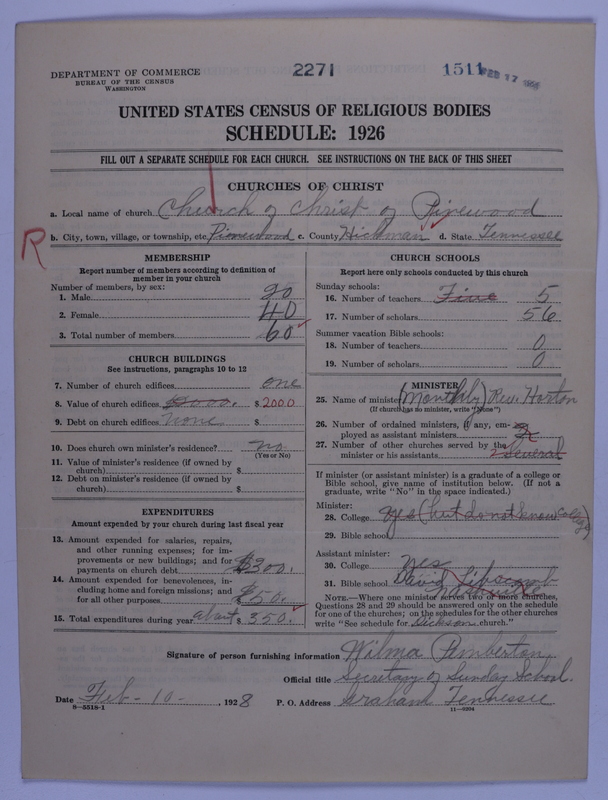 DEPARTMENT OF COMMERCE
BUREAU OF THE CENSUS
WASHINGTON
2271
1511 FEB 17
UNITED STATES CENSUS OF RELIGIOUS BODIES
SCHEDULE: 1926
FILL OUT A SEPARATE SCHEDULE FOR EACH CHURCH. SEE INSTRUCTIONS ON THE BACK OF THIS SHEET
CHURCHES OF CHRIST
a. Local name of church Church of Christ of Pinewood
R
b. City, town, village, or township, etc. Pinewood c. County Hickman d. State Tennessee
MEMBERSHIP
Report number of members according to definition of
member in your church
Number of members, by sex:
1. Male 20
2. Female 40
3. Total number of members 60
CHURCH BUILDINGS
See instructions, paragraphs 10 to 12
7. Number of church edifices one
8. Value of church edifices 2000. $ 2000
9. Debt on church edifices none $
10. Does church own minister's residence? no
(Yes or No)
11. Value of minister's residence (if owned by
church) $
12. Debt on minister's residence (if owned by
church) $
EXPENDITURES
Amount expended by your church during last fiscal year
13. Amount expended for salaries, repairs,
and other running expenses; for im-
provements or new buildings; and for
payments on church debt $300.
14. Amount expended for benevolences, in-
cluding home and foreign missions; and
for all other purposes $50.
15. Total expenditures during year about $ 350.
CHURCH SCHOOLS
Report here only schools conducted by this church
Sunday schools:
16. Number of teachers Five 5
17. Number of scholars 56
Summer vacation Bible schools:
18. Number of teachers 0
19. Number of scholars 0
MINISTER
25. Name of minister (Monthly) Rew Horton
(If church has no minister, write "None")
26. Number of ordained ministers, if any, em-
ployed as assistant ministers
27. Number of other churches served by the
minister or his assistants Several
If minister (or assistant minister) is a graduate of a college or
Bible school, give name of institution below. (If not a
graduate, write "No" in the space indicated.)
Minister:
28. College yes (but do not know college)
29. Bible school
Assistant minister:
30. College yes
31. Bible school David Lipscomb
NOTE.—Where one minister serves two or more churches,
Questions 28 and 29 should be answered only on the schedule
for one of the churches; on the schedules for the other churches
write "See schedule for Dickson church."
Signature of person furnishing information Wilma Pemberton
Official title Secretary of Sunday School.
Date Feb - 10 -, 1928 P. O. Address Graham Tennessee
8—5518-1
11—9204